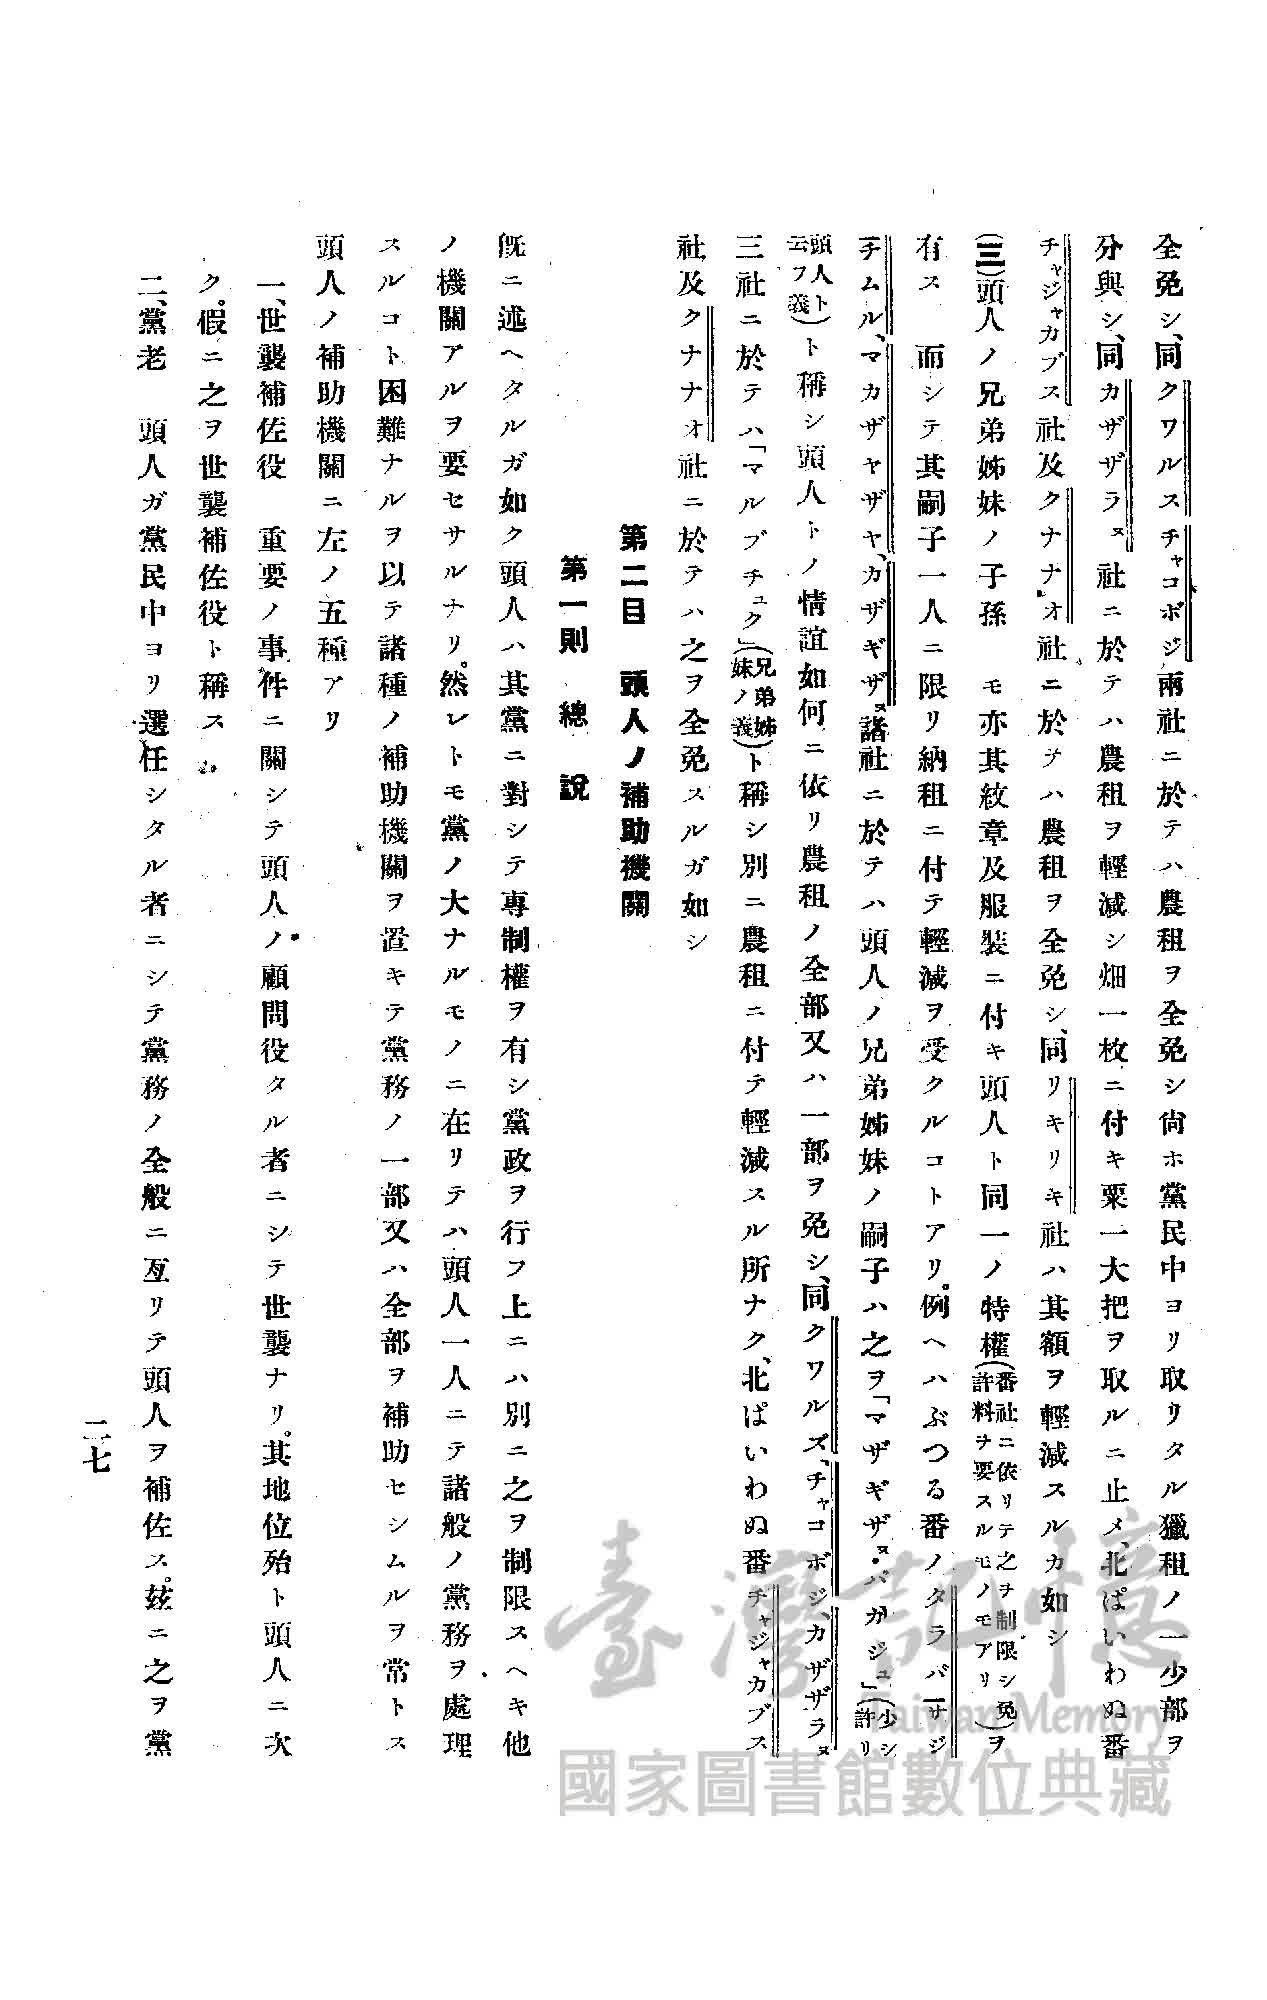 全免シ、同クワルスチャコボジ兩社ニ於テハ農租ヲ全免シ尙ホ黨民中ヨリ取リタル獵租ノ一少部ヲ
分與シ、同カザザラヌ社ニ於テハ農租ヲ輕減シ畑一枚ニ付キ粟一大把ヲ取ルニ止メ、北ぱいわぬ番
チャジャカブス社及クナナオ社ニ於テハ農租ヲ全免シ、同リキリキ社ハ其額ヲ輕減スルカ如シ
(三)頭人ノ兄弟姊妹ノ子孫 モ亦其紋章及服裝ニ付キ頭人ト同一ノ特權(番社ニ依リテ之ヲ制限シ免許料ヲ要スルモノモアリ)ヲ
有ス 而シテ其嗣子一人ニ限リ納租ニ付テ輕減ヲ受クルコトアリ。例ヘハぶつる番ノタラバーサジ
ーチムル、マカザヤザヤ、カザギザヌ諸社ニ於テハ頭人ノ兄弟姊妹ノ嗣子ハ之ヲ「マザギザヌ・パガジュ」(少シ許リ
頭人ト云フ義)ト稱シ頭人トノ情誼如何ニ依リ農租ノ全部又ハ一部ヲ免シ、同クワルズ、チャコボジ、カザザラヌ
三社ニ於テハ「マルブチュク」(兄弟姊妹ノ義)ト稱シ別ニ農租ニ付テ輕減スル所ナク、北ぱいわぬ番チャジャカブス
社及クナナオ社ニ於テハ之ヲ全免スルガ如シ
第二目 頭人ノ補助機關
第一則 總說
旣ニ述ヘタルガ如ク頭人ハ其黨ニ對シテ專制權ヲ有シ黨政ヲ行フ上ニハ別ニ之ヲ制限スヘキ他
ノ機關アルヲ要セサルナリ。然レトモ黨ノ大ナルモノニ在リテハ頭人一人ニテ諸般ノ黨務ヲ處理
スルコト困難ナルヲ以テ諸種ノ補助機關ヲ置キテ黨務ノ一部又ハ全部ヲ補助セシムルヲ常トス
頭人ノ補助機關ニ左ノ五種アリ
一、世襲補佐役 重要ノ事件ニ關シテ頭人ノ顧問役タル者ニシテ世襲ナリ。其地位殆ト頭人ニ次
ク。假ニ之ヲ世襲補佐役ト稱ス
二、黨老 頭人ガ黨民中ヨリ選任シタル者ニシテ黨務ノ全般ニ亙リテ頭人ヲ補佐ス。玆ニ之ヲ黨
二七
臺灣記憶
Taiwan Memory
國家圖書館數位典藏